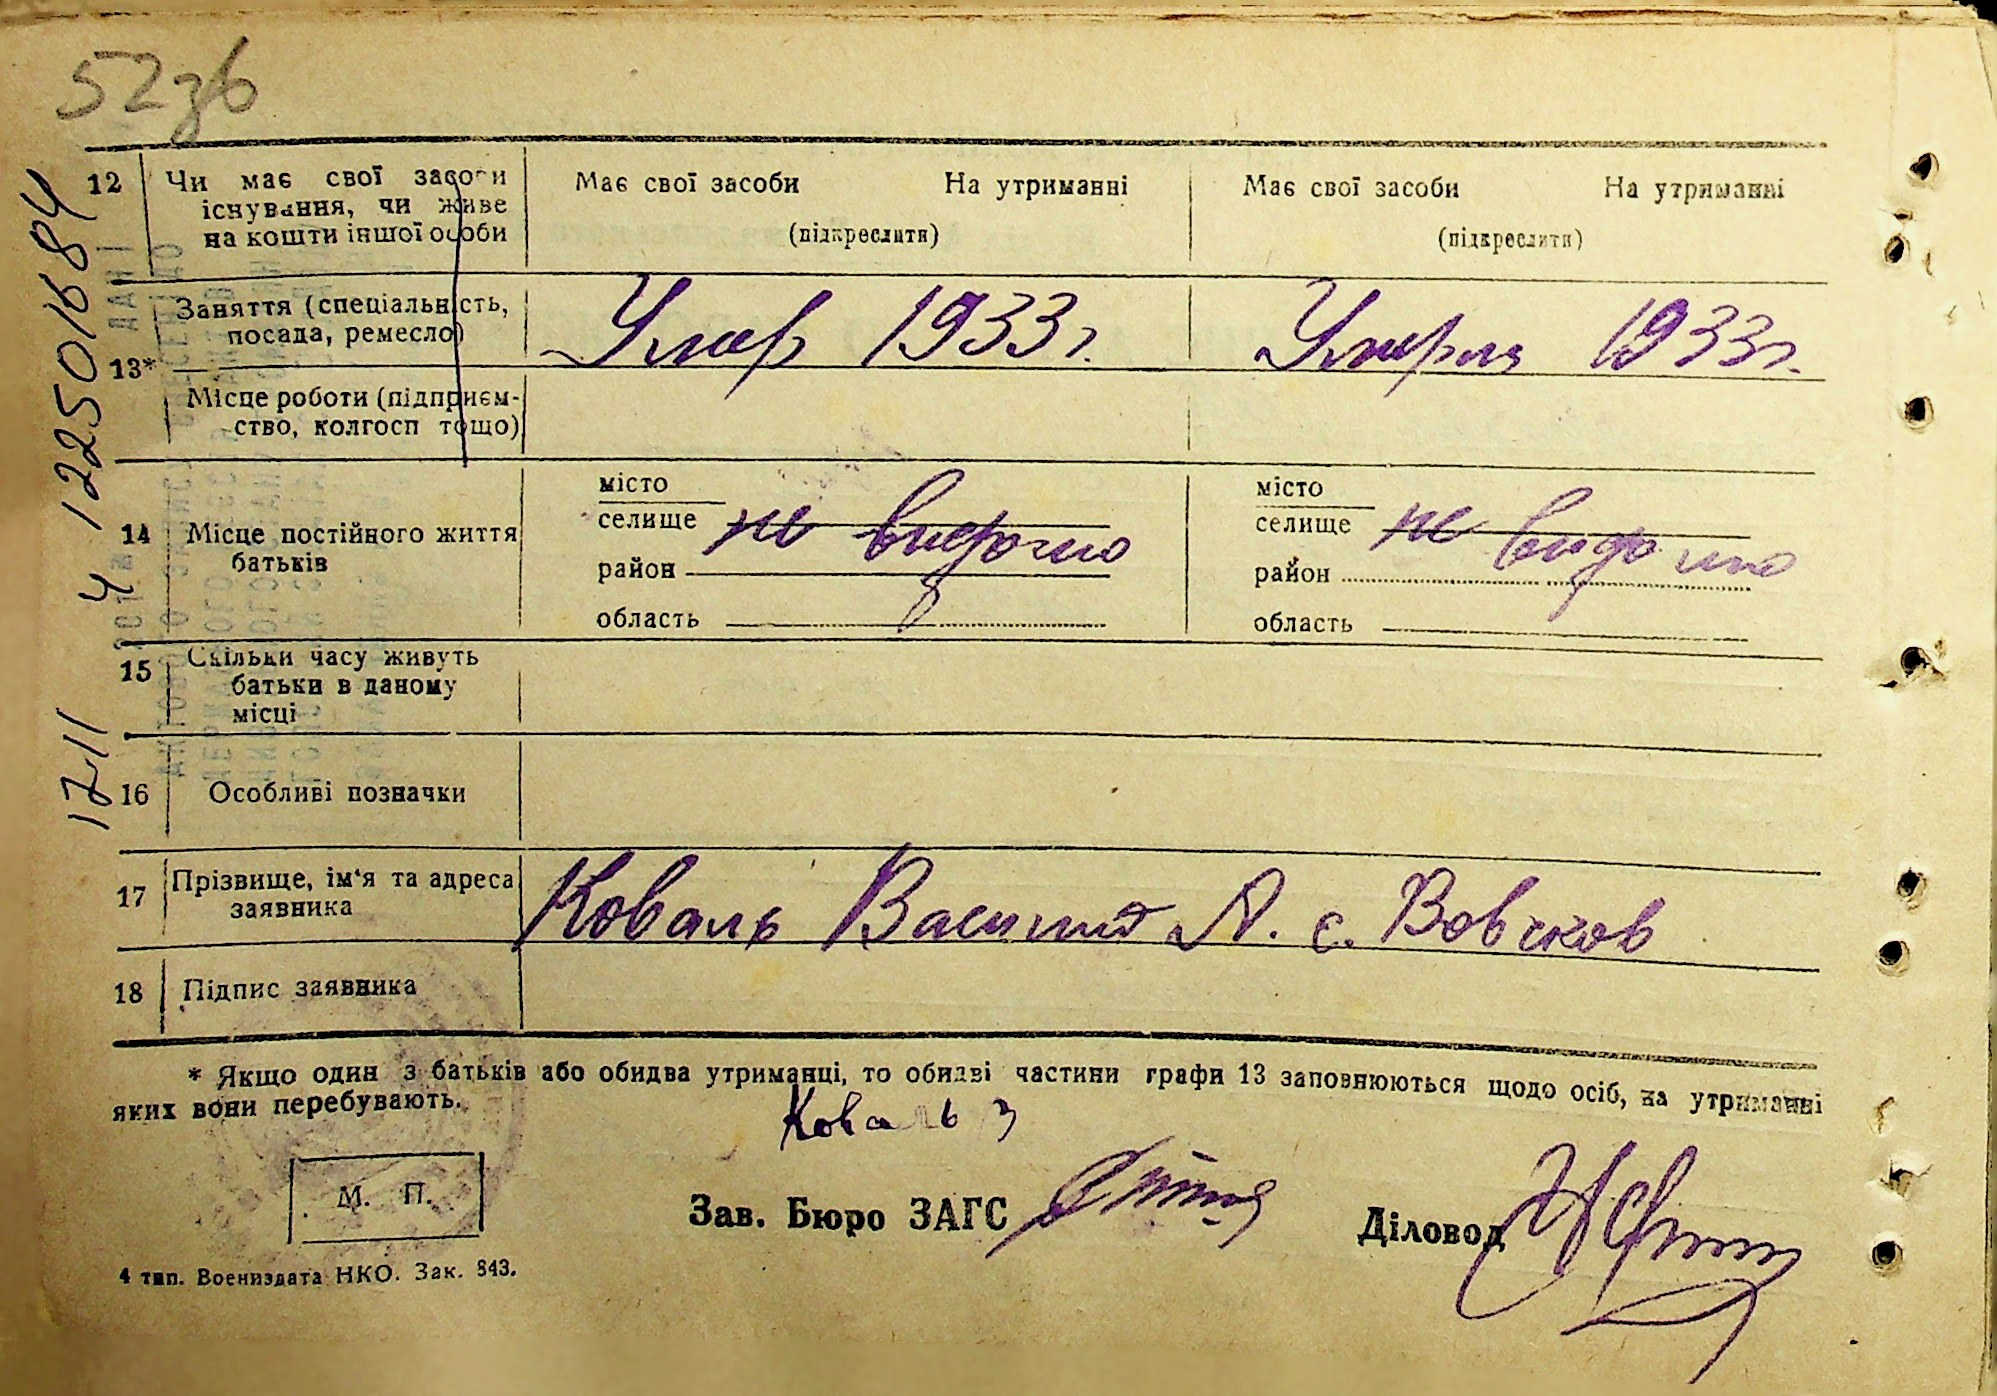 52зв
12 Чи має свої засоби Має свої засоби На утриманні Має свої засоби На утриманні
існування, чи живе
на кошти іншої особи (підкреслити) (підкреслити)
Заняття (спеціальність, Умер 1933г. Умерла 1933г.
посада, ремесло)
13*
Місце роботи (підприєм-
ство, колгосп тощо)
місто місто
14 Місце постійного життя селище не видомо селище не видомо
батьків
район район
область область
15 Скільки часу живуть
батьки в даному
місці
16 Особливі позначки
17 Прізвище, ім'я та адреса Коваль Василий А. с. Вовчков
заявника
18 Підпис заявника
* Якщо один з батьків або обидва утриманці, то обидві частини графи 13 заповнюються щодо осіб, на утриманні
яких вони перебувають.
Коваль З
М. П.
Зав. Бюро ЗАГС
Діловод
4 тип. Воениздата НКО. Зак. 843.
1711 4 122501684